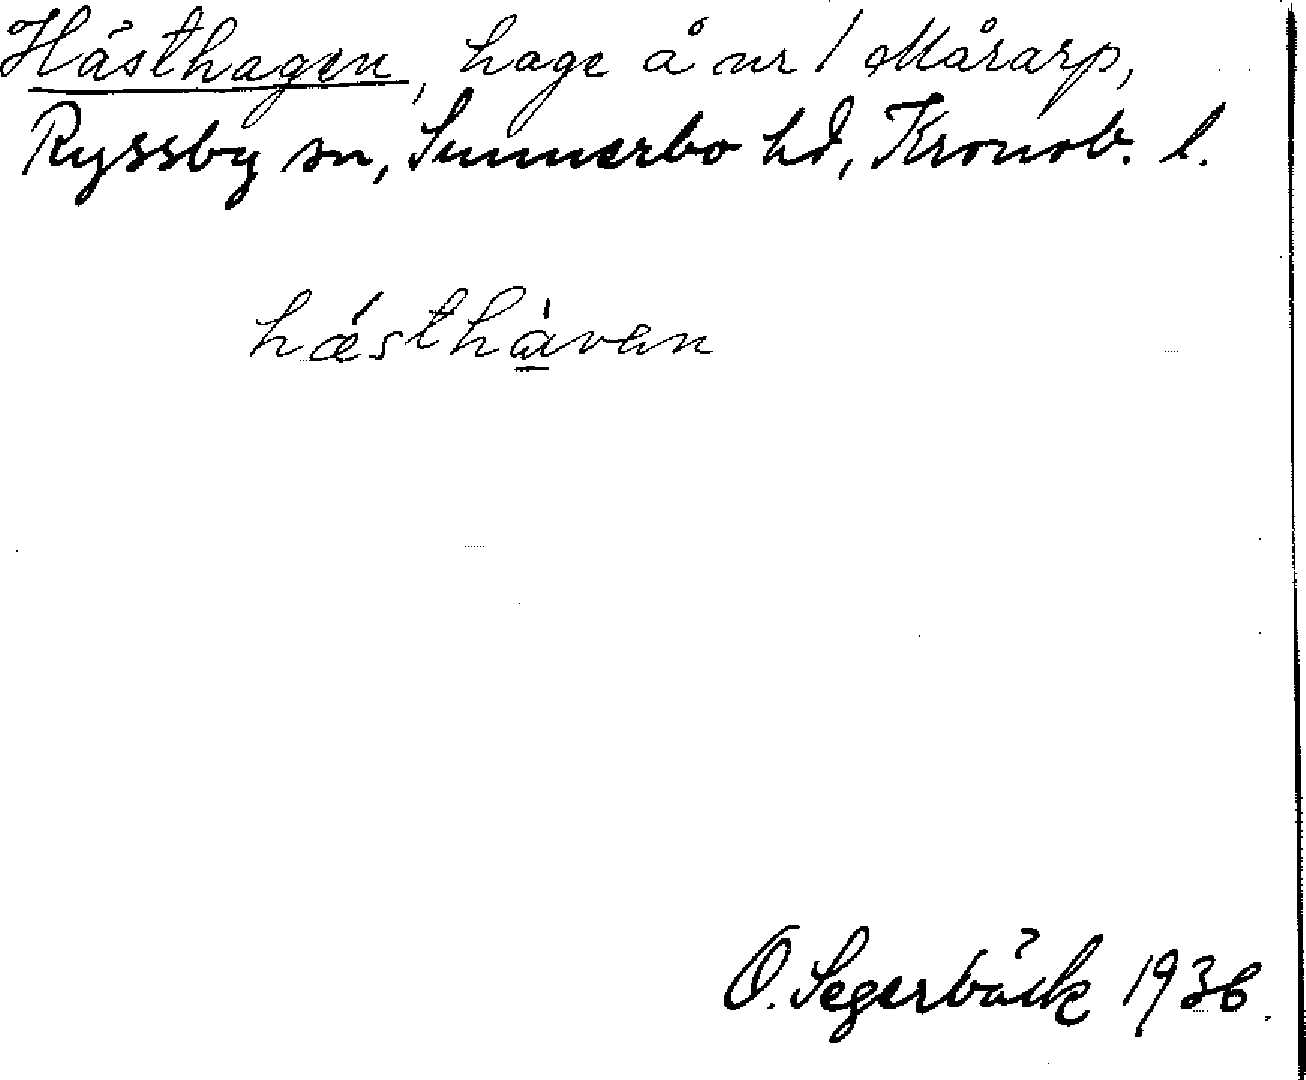 Hästhagen, hage å nr 1 Mårarp,
Ryssby sn, Sunnerbo hd, Kronob. l.
hǽsthàvan
O. Segerbäck 1936.